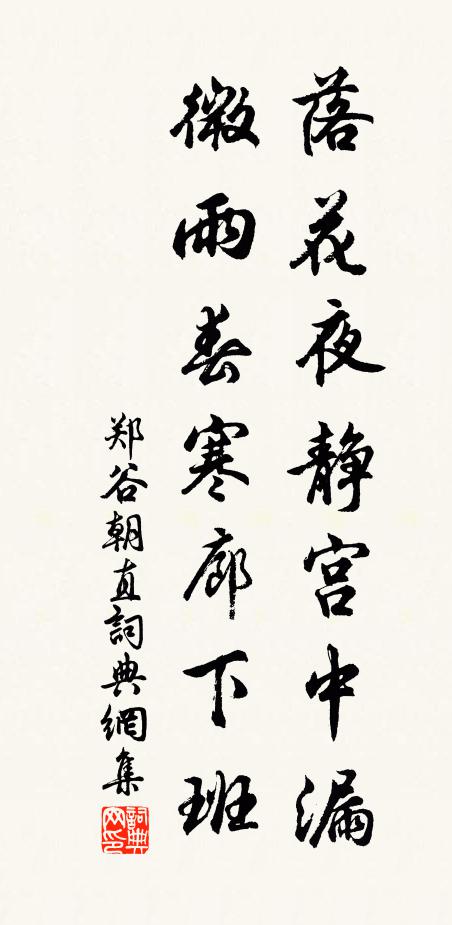 落花夜静宫中漏
微雨春寒廊下班
郑谷朝直詞典網集
詞典网印